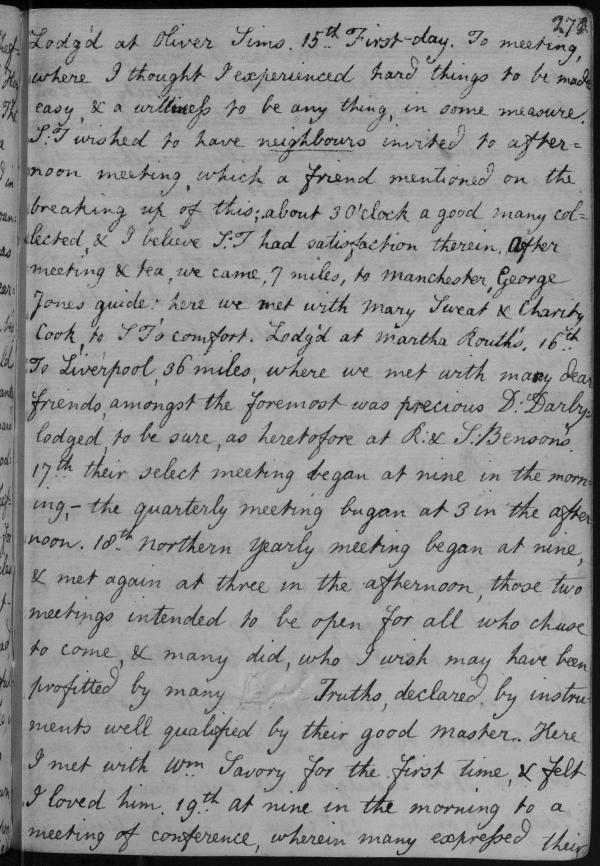 273
Lodg'd at Oliver Sims. 15th First-day. To meeting,
where I thought I experienced hard things to be made
easy, & a willingness to be any thing, in some measure.
S:T wished to have neighbours invited to after=
noon meeting, which a friend mentioned on the
breaking up of this; about 3 O'clock a good many col=
lected, & I believe S:T had satisfaction therein. After
meeting & tea, we came, 7 miles, to Manchester, George
Jones guide: here we met with Mary Sweat & Charity
Cook, to S T's comfort. Lodg'd at Martha Routh's. 16th
To Liverpool, 36 miles, where we met with many dear
friends, amongst the foremost was precious D: Darby,
lodged, to be sure, as heretofore at R: & S: Benson's.
17th their select meeting began at nine in the morn=
ing,- the quarterly meeting began at 3 in the after
noon. 18th Northern yearly meeting began at nine,
& met again at three in the afternoon, those two
meetings intended to be open for all who chuse
to come, & many did, who I wish may have been
profitted by many Truths, declared by instru=
ments well qualified by their good master. Here
I met with Wm Savory for the first time, & felt
I loved him. 19th at nine in the morning to a
meeting of conference, wherein many expressed their